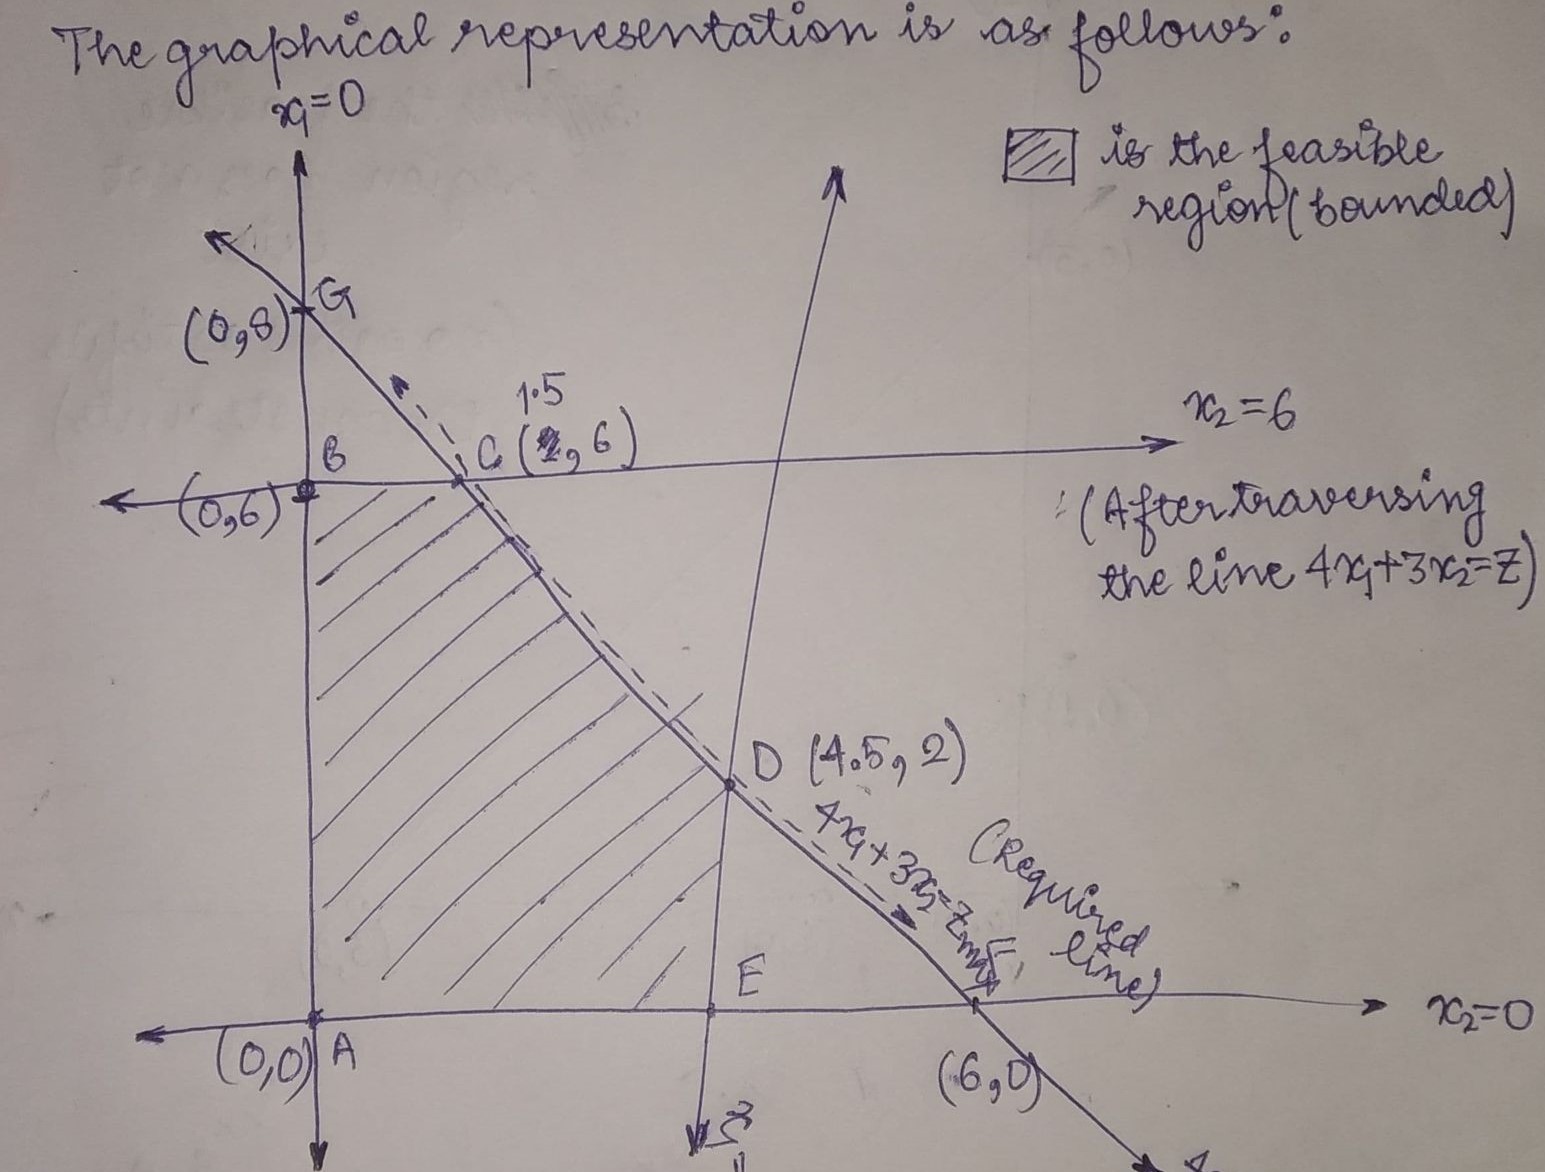 The graphical representation is as follows:
x₁=0
is the feasible
region (bounded)
G
(0,8)
1.5
B
C (, 6)
x₂=6
(0,6)
(After traversing
the line 4x₁+3x₂=Z)
D (4.5, 2)
4x₁+3x₂=Zmax
(Required
line)
F
E
x₂=0
(0,0) A
(6,0)